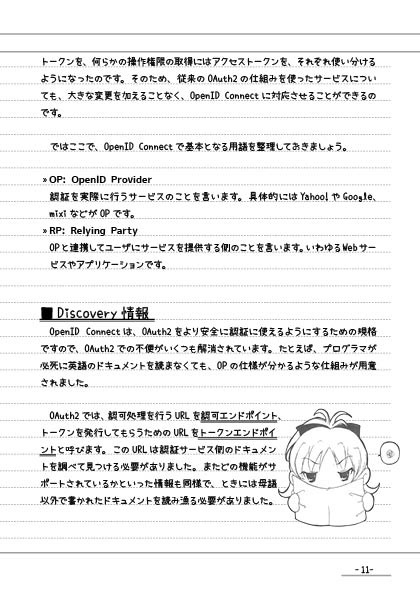 トークンを、何らかの操作権限の取得にはアクセストークンを、それぞれ使い分ける
ようになったのです。そのため、従来の OAuth2 の仕組みを使ったサービスについ
ても、大きな変更を加えることなく、OpenID Connect に対応させることができるの
です。
ではここで、OpenID Connect で基本となる用語を整理しておきましょう。
» OP: OpenID Provider
認証を実際に行うサービスのことを言います。具体的には Yahoo! や Google、
mixi などが OP です。
» RP: Relying Party
OP と連携してユーザにサービスを提供する側のことを言います。いわゆる Web サー
ビスやアプリケーションです。
■ Discovery 情報
OpenID Connect は、OAuth2 をより安全に認証に使えるようにするための規格
ですので、OAuth2 での不便がいくつも解消されています。たとえば、プログラマが
必死に英語のドキュメントを読まなくても、OP の仕様が分かるような仕組みが用意
されました。
OAuth2 では、認可処理を行う URL を認可エンドポイント、
トークンを発行してもらうための URL をトークンエンドポイ
ントと呼びます。この URL は認証サービス側のドキュメン
トを調べて見つける必要がありました。またどの機能がサ
ポートされているかといった情報も同様で、ときには母語
以外で書かれたドキュメントを読み漁る必要がありました。
- 11-